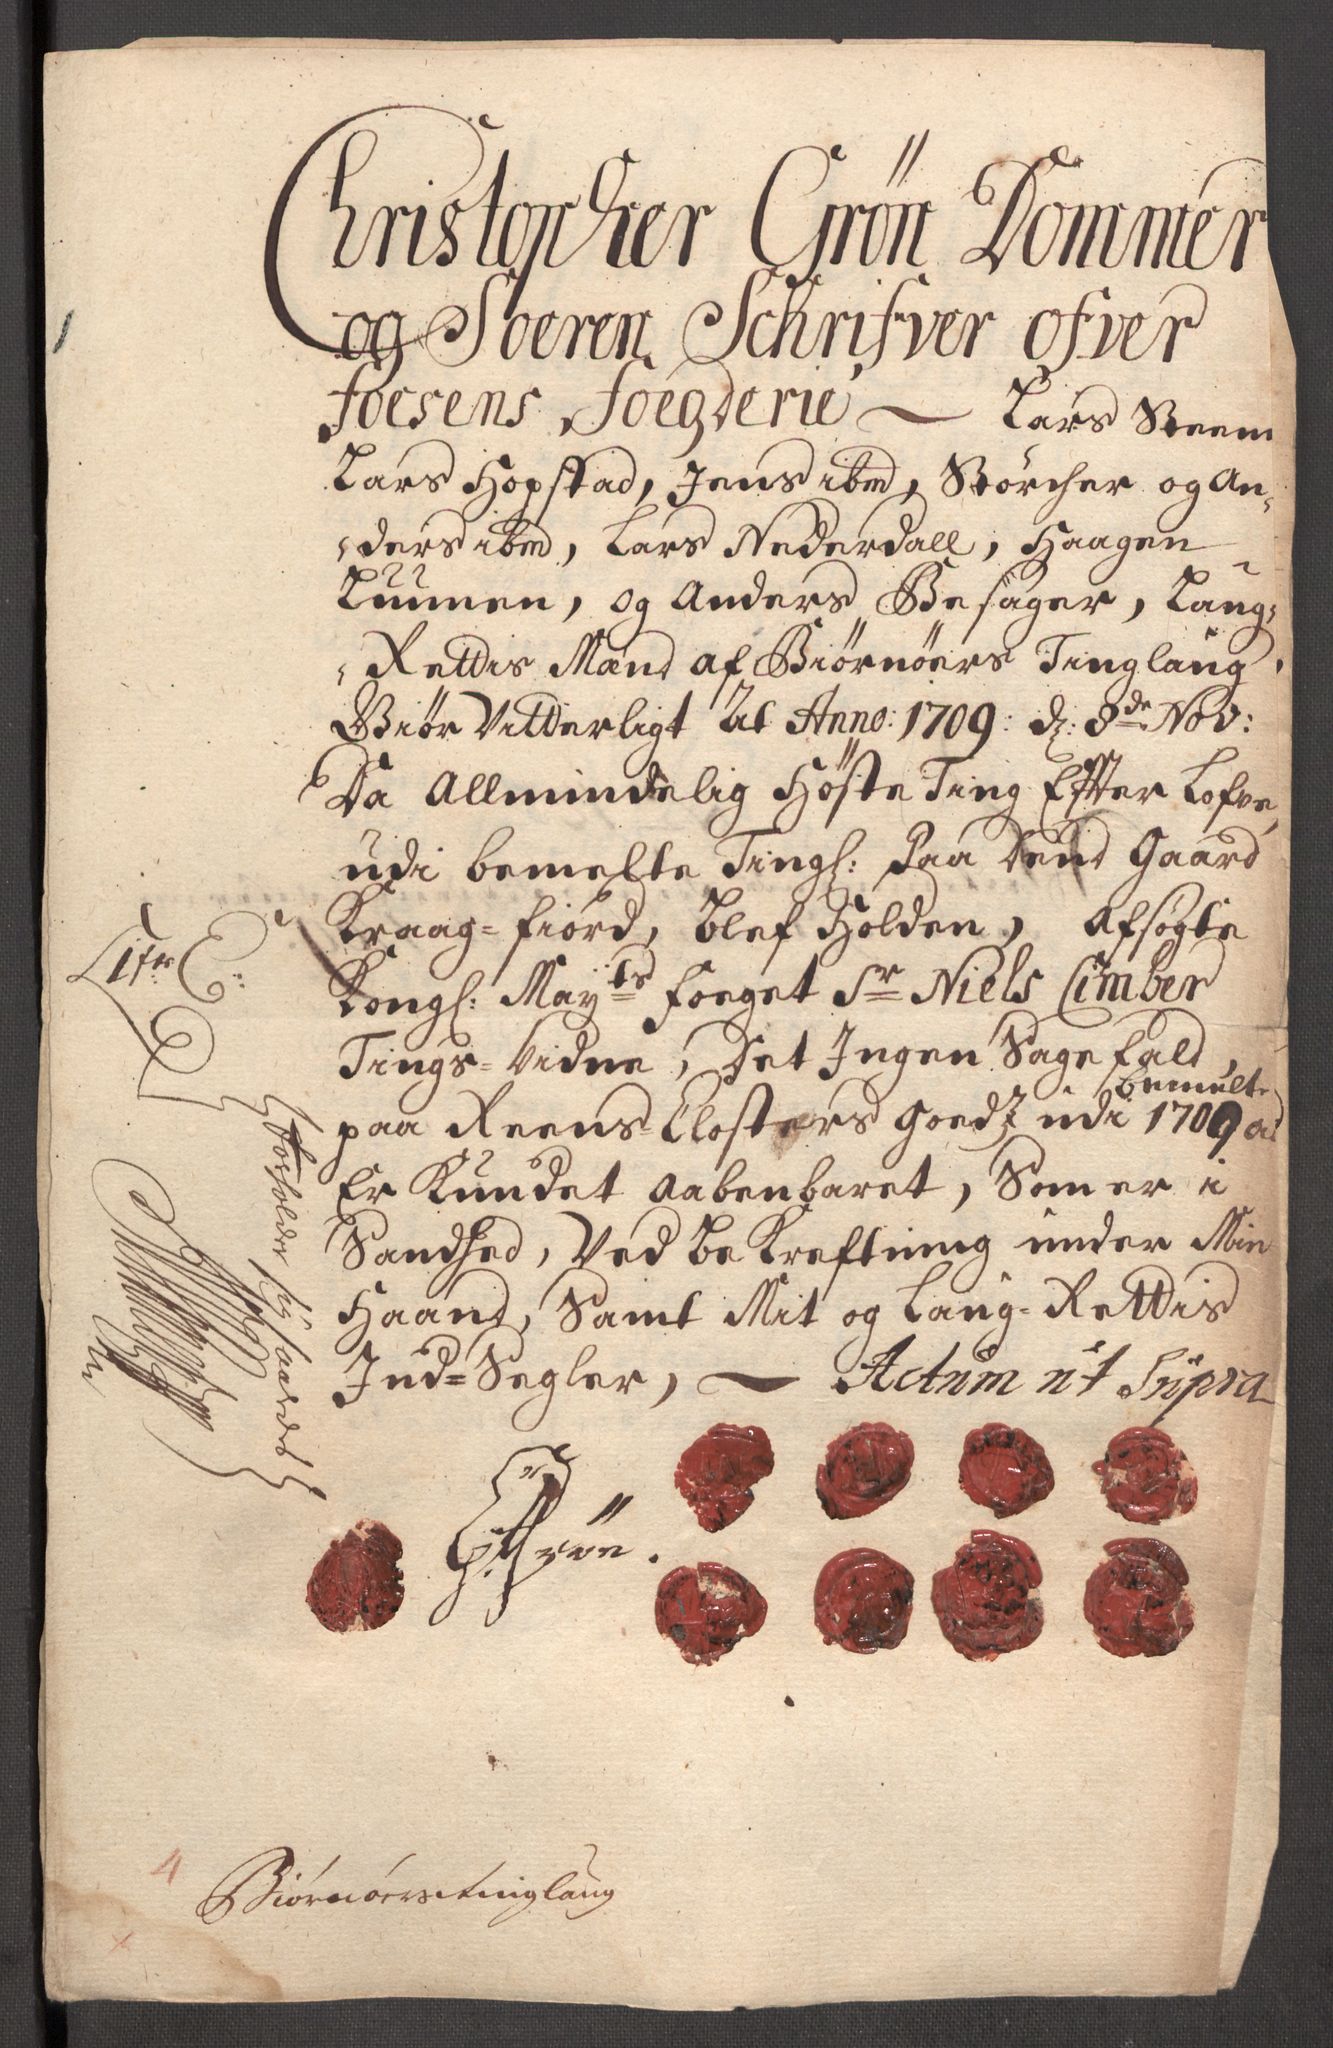 Christopher Grön Dommer
og Soeren Schrifver ofver
foesens foegderie — Lars Steem
Lars Hopstad, Jens ibm, Störcher og An-
-ders ibm, Lars Nederdall, Haagen
Tuunen, og Anders Besager, Laug-
-Rettis Mænd af Biörnöers Tinglaug.
Giör Vitterligt At Anno: 1709: d: 8de Nov:
Da Allmindelig Höste Ting Effter Lofve,
udi bemelte Tingl: Paa dend Gaard
Kraag-fiord, blef Holden, Afsögte
Kongl: Mayts foeget Sr Niels Cimber
Tings-Vidne, Det Ingen Sagefald,
paa Reens-Closters Goedz udi bemelte 1709 a
Er Kundet Aabenbaret, Som er i
Sandhed, Ved bekreftning under Min
Haand, Samt Mit og Laug-Rettis
Ind-Segler, — Actum ut Supra
C: Grön.
Litr. E:
forholder sig saaledes
4
Biörnöers tinglaug